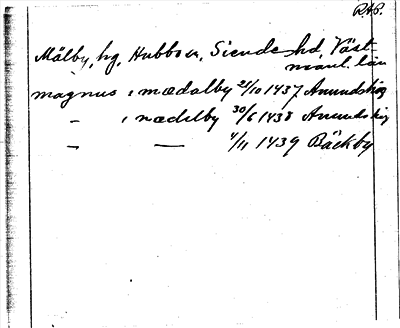 RAP.
Mälby, hg. Hubbo sn, Siende hd, Väst-
manl. län
magnus i mædalby 21/10 1437 Anundshög
– i nædelby 30/6 1438 Anundshög
– — 4/11 1439 Bäckby